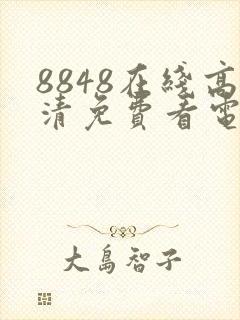 8848在线高
清免費看電
大島智子